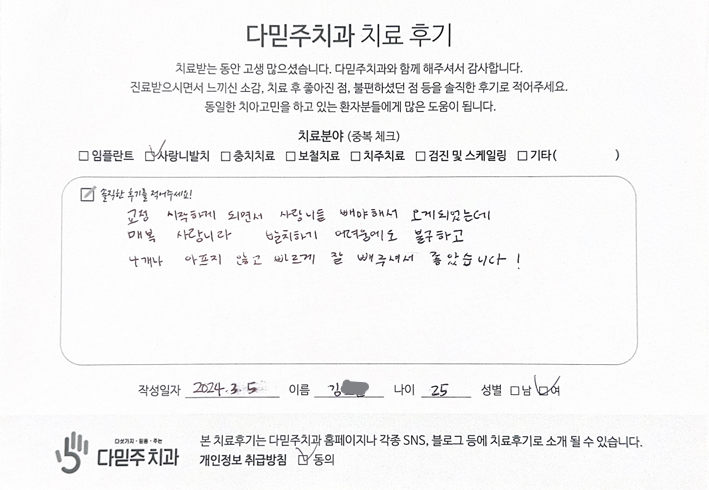 다믿주치과 치료 후기
치료받는 동안 고생 많으셨습니다. 다믿주치과와 함께 해주셔서 감사합니다.
진료받으시면서 느끼신 소감, 치료 후 좋아진 점, 불편하셨던 점 등을 솔직한 후기로 적어주세요.
동일한 치아고민을 하고 있는 환자분들에게 많은 도움이 됩니다.
치료분야 (중복 체크)
□ 임플란트 ☑ 사랑니발치 □ 충치치료 □ 보철치료 □ 치주치료 □ 검진 및 스케일링 □ 기타( )
솔직한 후기를 적어주세요!
교정 시작하게 되면서 사랑니를 빼야해서 오게되었는데
매복 사랑니라 발치하기 어려움에도 불구하고
두개나 아프지 않고 빠르게 잘 빼주셔서 좋았습니다!
작성일자 2024.3.5 이름 김 나이 25 성별 □남 ☑여
다섯가지·믿음·주는
다믿주치과
본 치료후기는 다믿주치과 홈페이지나 각종 SNS, 블로그 등에 치료후기로 소개 될 수 있습니다.
개인정보 취급방침 ☑ 동의